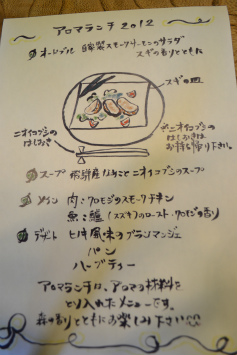 アロマランチ2012
オードブル 自家製スモークサーモンのサラダ
スギの香りとともに
スギの皿
ニオイコブシの
はしおき
ニオイコブシの
はしおきは
お持ち帰り下さい。
スープ ニオイコブシのスープ
メイン 肉:クロモジのスモークチキン
魚:鱸(スズキ)のロースト・クロモジの香り
デザート ヒバ風味のブランマンジェ
パン
ハーブティー
アロマランチは、アロマの材料を
とり入れたメニューです。
森の香りとともにお楽しみ下さい